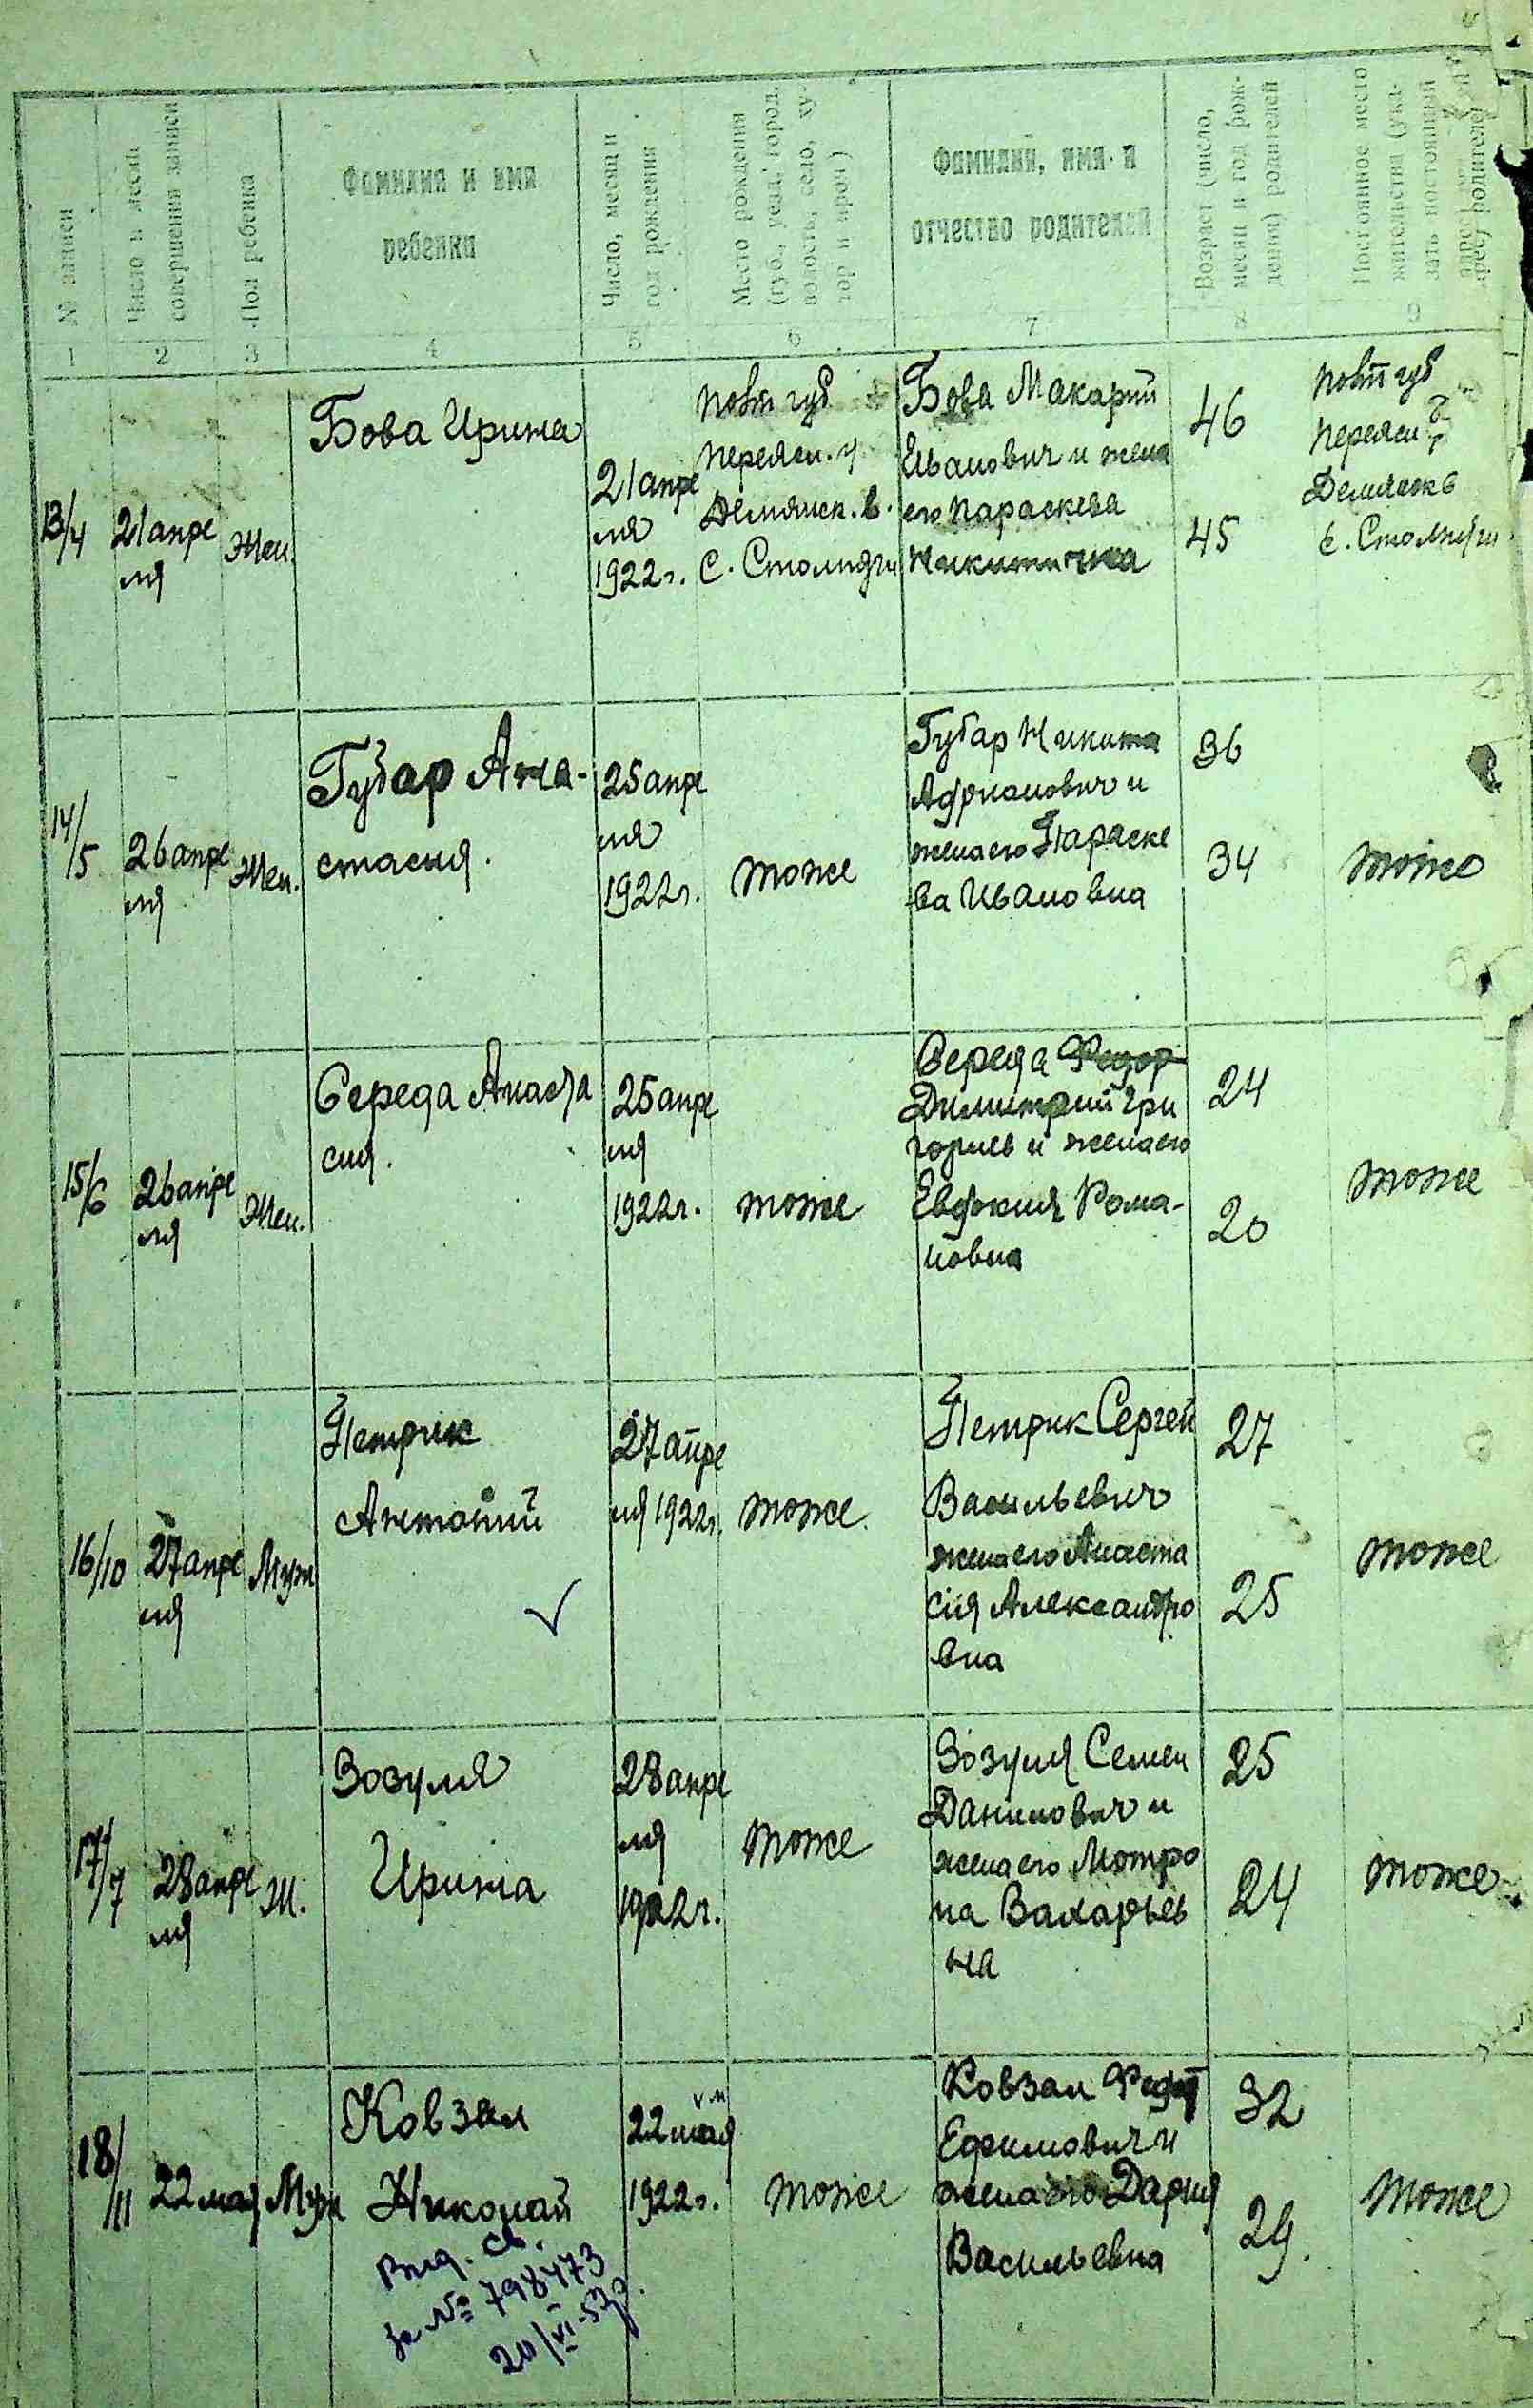 № записи
Число и месяц
совершения записи
Пол ребенка
Фамилия и имя
ребенка
Число, месяц и
год рождения
Место рождения
(губ., уезд, город,
волость, село, ху-
тор и проч)
Фамилии, имя и
отчество родителей
Возраст (число,
месяц и год рож-
дения) родителей
Постоянное место
жительства (ука-
зать постоянный
адрес) родителей
1
2
3
4
5
6
7
8
9
13/4
21 апре
ля
Жен.
Бова Ирина
21 апре
ля
1922г.
Полт губ
Переясл. у
Демянск. в.
с. Столпяги
Бова Макарий
Иванович и жена
его Параскева
Никитична
46
45
Полт губ
Переясл
с. Столпяги
14/5
26 апре
ля
Жен.
Губар Ана-
стасия.
25 апре
ля
1922г.
тоже
Губар Никита
Адрианович и
жена его Параске
ва Ивановна
36
34
тоже
15/6
26 апре
ля
Жен.
Середа Анаста
сия.
25 апре
ля
1922г.
тоже
Середа Федор
Димитрий Гри
горьев и жена его
Евдокия Рома-
новна
24
20
тоже
16/10
27 апре
ля
Муж
Петрик
Антоний
27 апре
ля 1922г.
тоже
Петрик Сергей
Васильевич
жена его Анаста
сия Александро
вна
27
25
тоже
17/7
28 апре
ля
Ж.
Зозуля
Ирина
28 апре
ля
1922г.
тоже
Зозуля Семен
Данилович и
жена его Мотро
на Захарьев
на
25
24
тоже
18/11
22 мая
Муж
Ковзал
Николай
22 мая
1922г.
тоже
Ковзал
Ефимович и
жена его Дария
Васильевна
32
29.
тоже
Выд. св.
за № 798473
20/VI-53р.